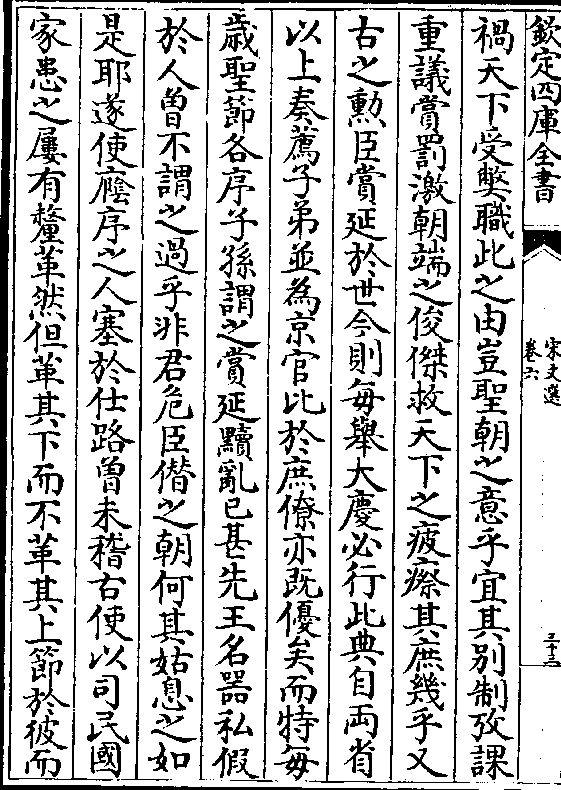 欽定四庫全書
宋文選
卷六
三十三
禍天下受獘職此之由豈聖朝之意乎宜其别制攷課
重議賞罰激朝端之俊傑救天下之疲瘵其庶幾乎又
古之勲臣賞延於世今則每舉大慶必行此典自兩省
以上奏薦子弟並為京官比於庶僚亦既優矣而特每
歳聖節各序子孫謂之賞延黷亂已甚先王名器私假
於人曽不謂之過乎非君危臣僭之朝何其姑息之如
是耶遂使廕序之人塞於仕路曽未稽古使以司民國
家患之屢有釐革然但革其下而不革其上節於彼而